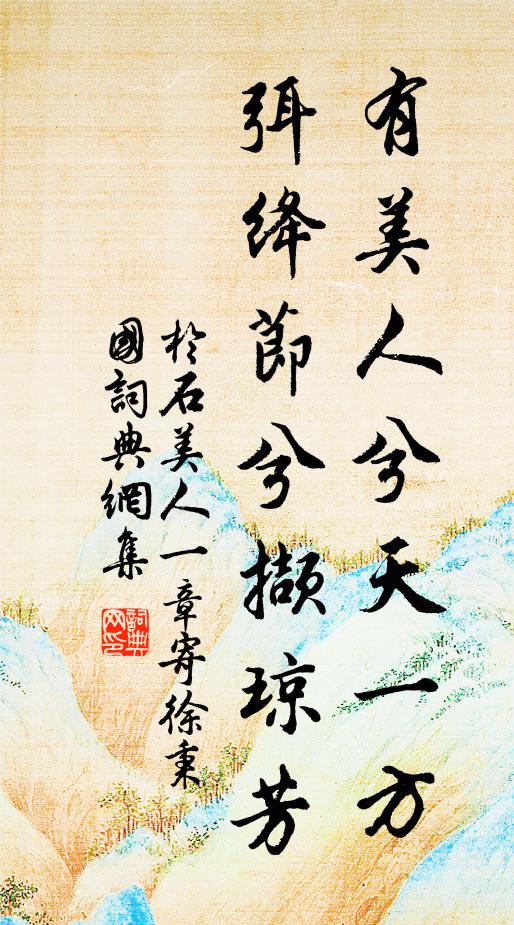 有美人兮天一方
弭绛節兮擷琼芳
於石美人一章寄徐秉
國詞典網集
詞典
网印